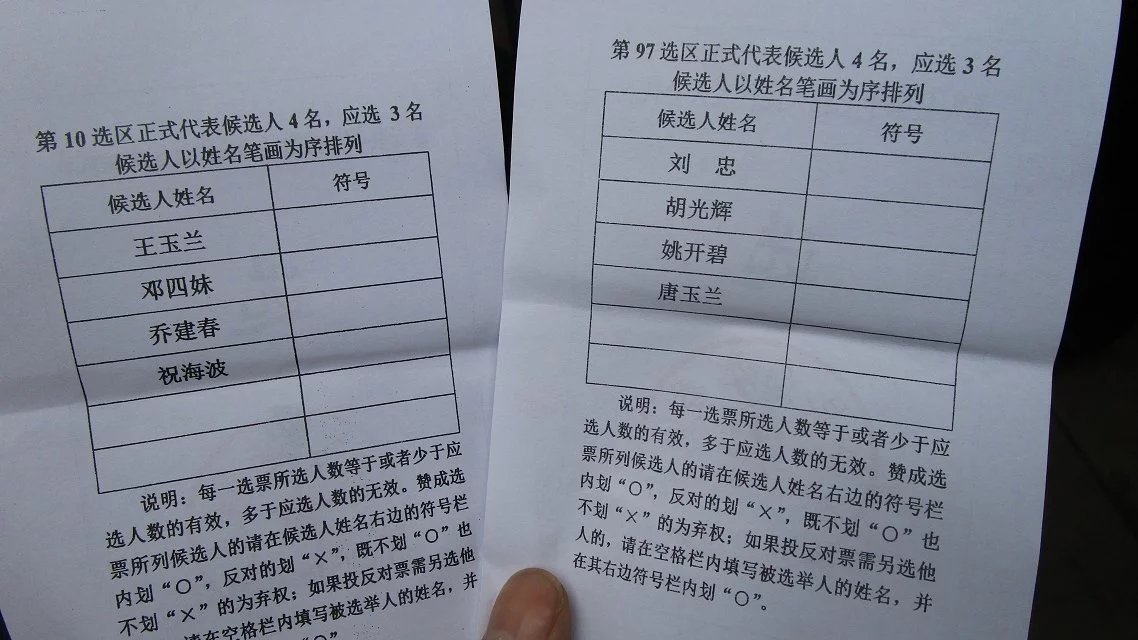 第 10 选区正式代表候选人 4 名，应选 3 名
候选人以姓名笔画为序排列
候选人姓名 符号
王玉兰
邓四妹
乔建春
祝海波
说明：每一选票所选人数等于或者少于应
选人数的有效，多于应选人数的无效。赞成选
票所列候选人的请在候选人姓名右边的符号栏
内划“○”，反对的划“×”，既不划“○”也
不划“×”的为弃权；如果投反对票需另选他
请在空格栏内填写被选举人的姓名，并
第 97 选区正式代表候选人 4 名，应选 3 名
候选人以姓名笔画为序排列
候选人姓名 符号
刘 忠
胡光辉
姚开碧
唐玉兰
说明：每一选票所选人数等于或者少于应
选人数的有效，多于应选人数的无效。赞成选
票所列候选人的请在候选人姓名右边的符号栏
内划“○”，反对的划“×”，既不划“○”也
不划“×”的为弃权；如果投反对票需另选他
人的，请在空格栏内填写被选举人的姓名，并
在其右边符号栏内划“○”。